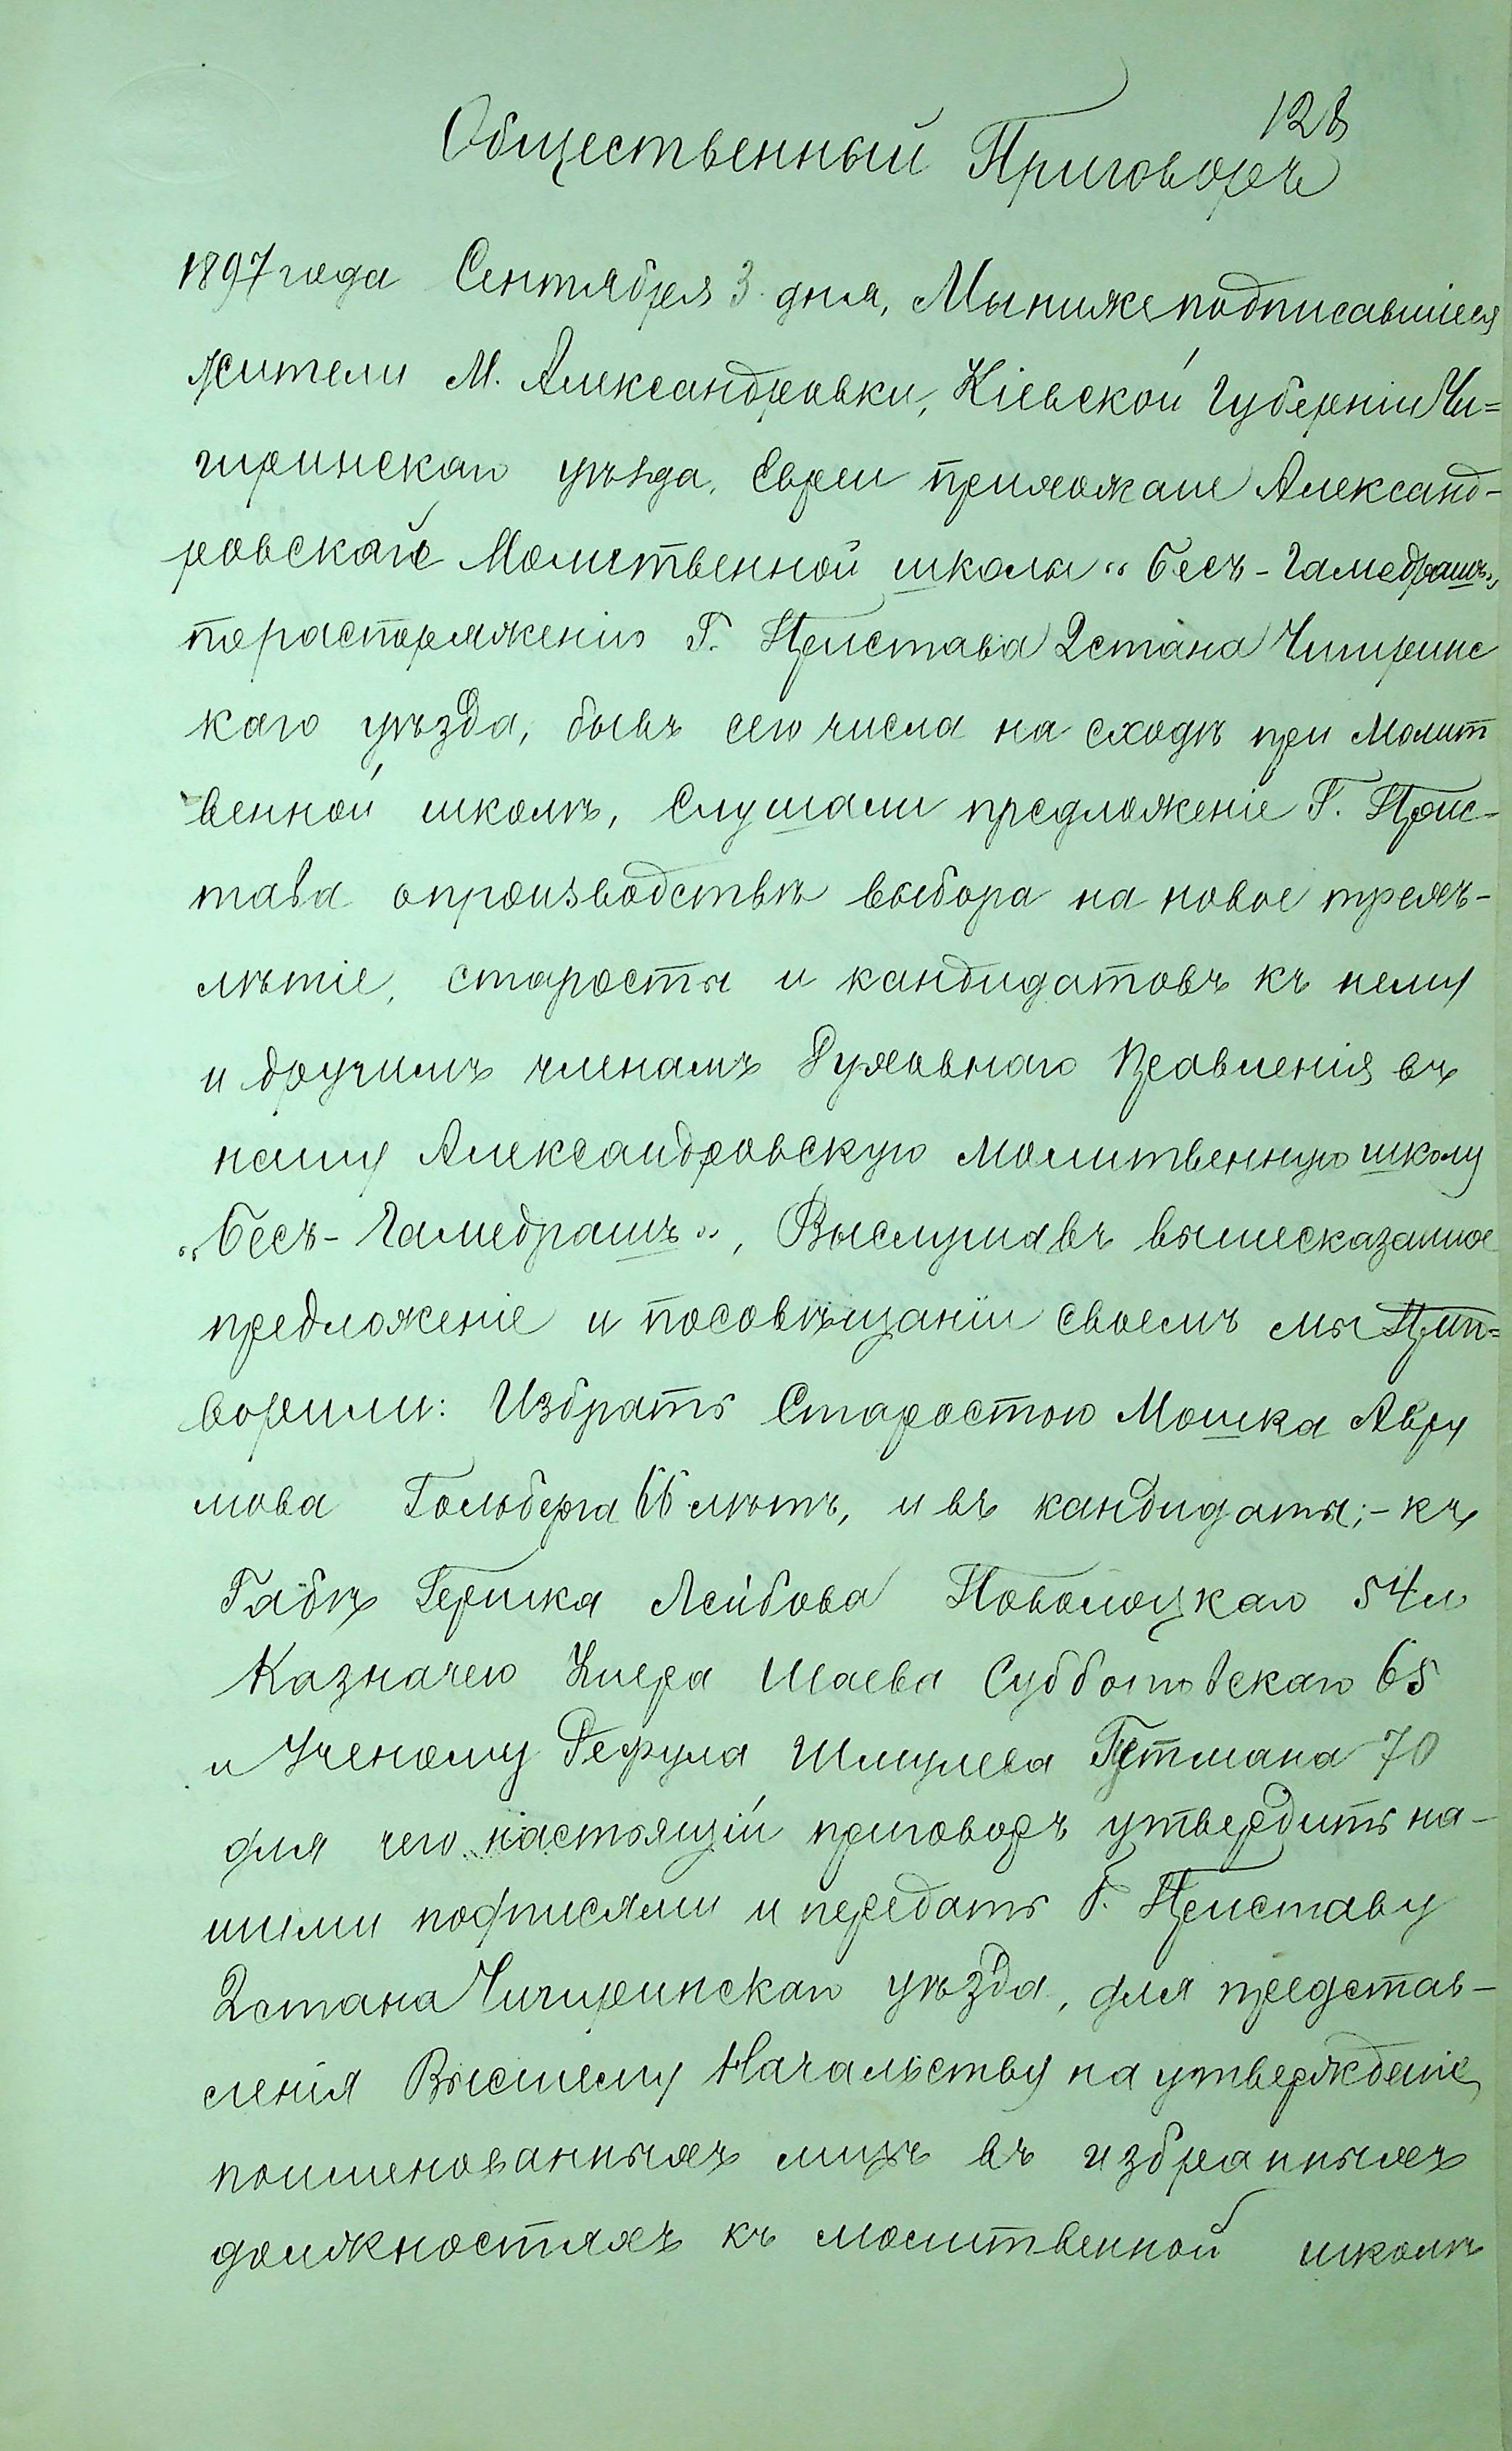 128
Общественный Приговоръ
1897 года Сентября 3 дня, Мы нижеподписавшіеся
жители М. Александровки, Кіевской Губерніи Чи=
гиринскаго уѣзда, Евреи прихожане Александ-
ровской Молитвенной школы „Бесъ-Гамедрашъ„
порасторяженію Г. Пристава 2 стана Чигиринс
каго уѣзда, бывъ сего числа на сходѣ при Молит
венной школѣ, Слушали предложеніе Г. Прис-
тава опроизводствѣ выбора на новое трехъ-
лѣтіе, старосты и кандидатовъ къ нему
и другимъ членамъ Духовнаго Правленія въ
нашу Александровскую молитвенную школу
„Бесъ-Гамедрашъ„, Выслушавъ вышесказанное
предложеніе и посовѣщаніи своемъ мы При=
ворили: Избрать Старостою Мошка Авру
мова Гольберга 66 лѣтъ, и въ кандидаты;- къ
Габѣ Гершка Лейбова Новолоцкаго 54 л
Казначею Хиера Шаева Субботовскаго 65
и Ученому Рефула Шмулева Гутмана 70
для чего настоящій приговоръ утвердить на-
шими подписями и передать Г. Приставу
2 стана Чигиринскаго уѣзда, для представ-
ленія Высшему Начальству на утвержденіе
поименованныхъ лицъ въ избранныхъ
должностяхъ къ молитвенной школѣ